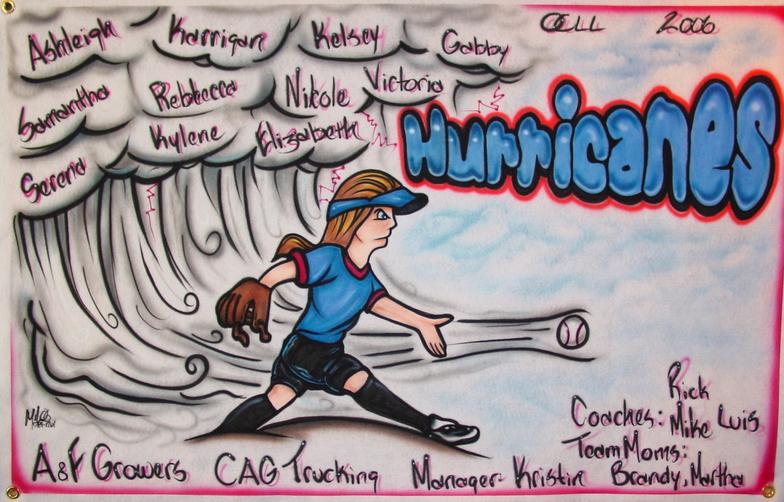 OCLL 2006
Ashleigh Karrigan Kelsey Gabby
Samantha Rebbecca Nikole Victoria
Serena Kylene Elizabeth
Hurricanes
Rick
Coaches: Mike Luis
Team Moms:
A&F Growers CAG Trucking Manager- Kristin Brandy, Martha